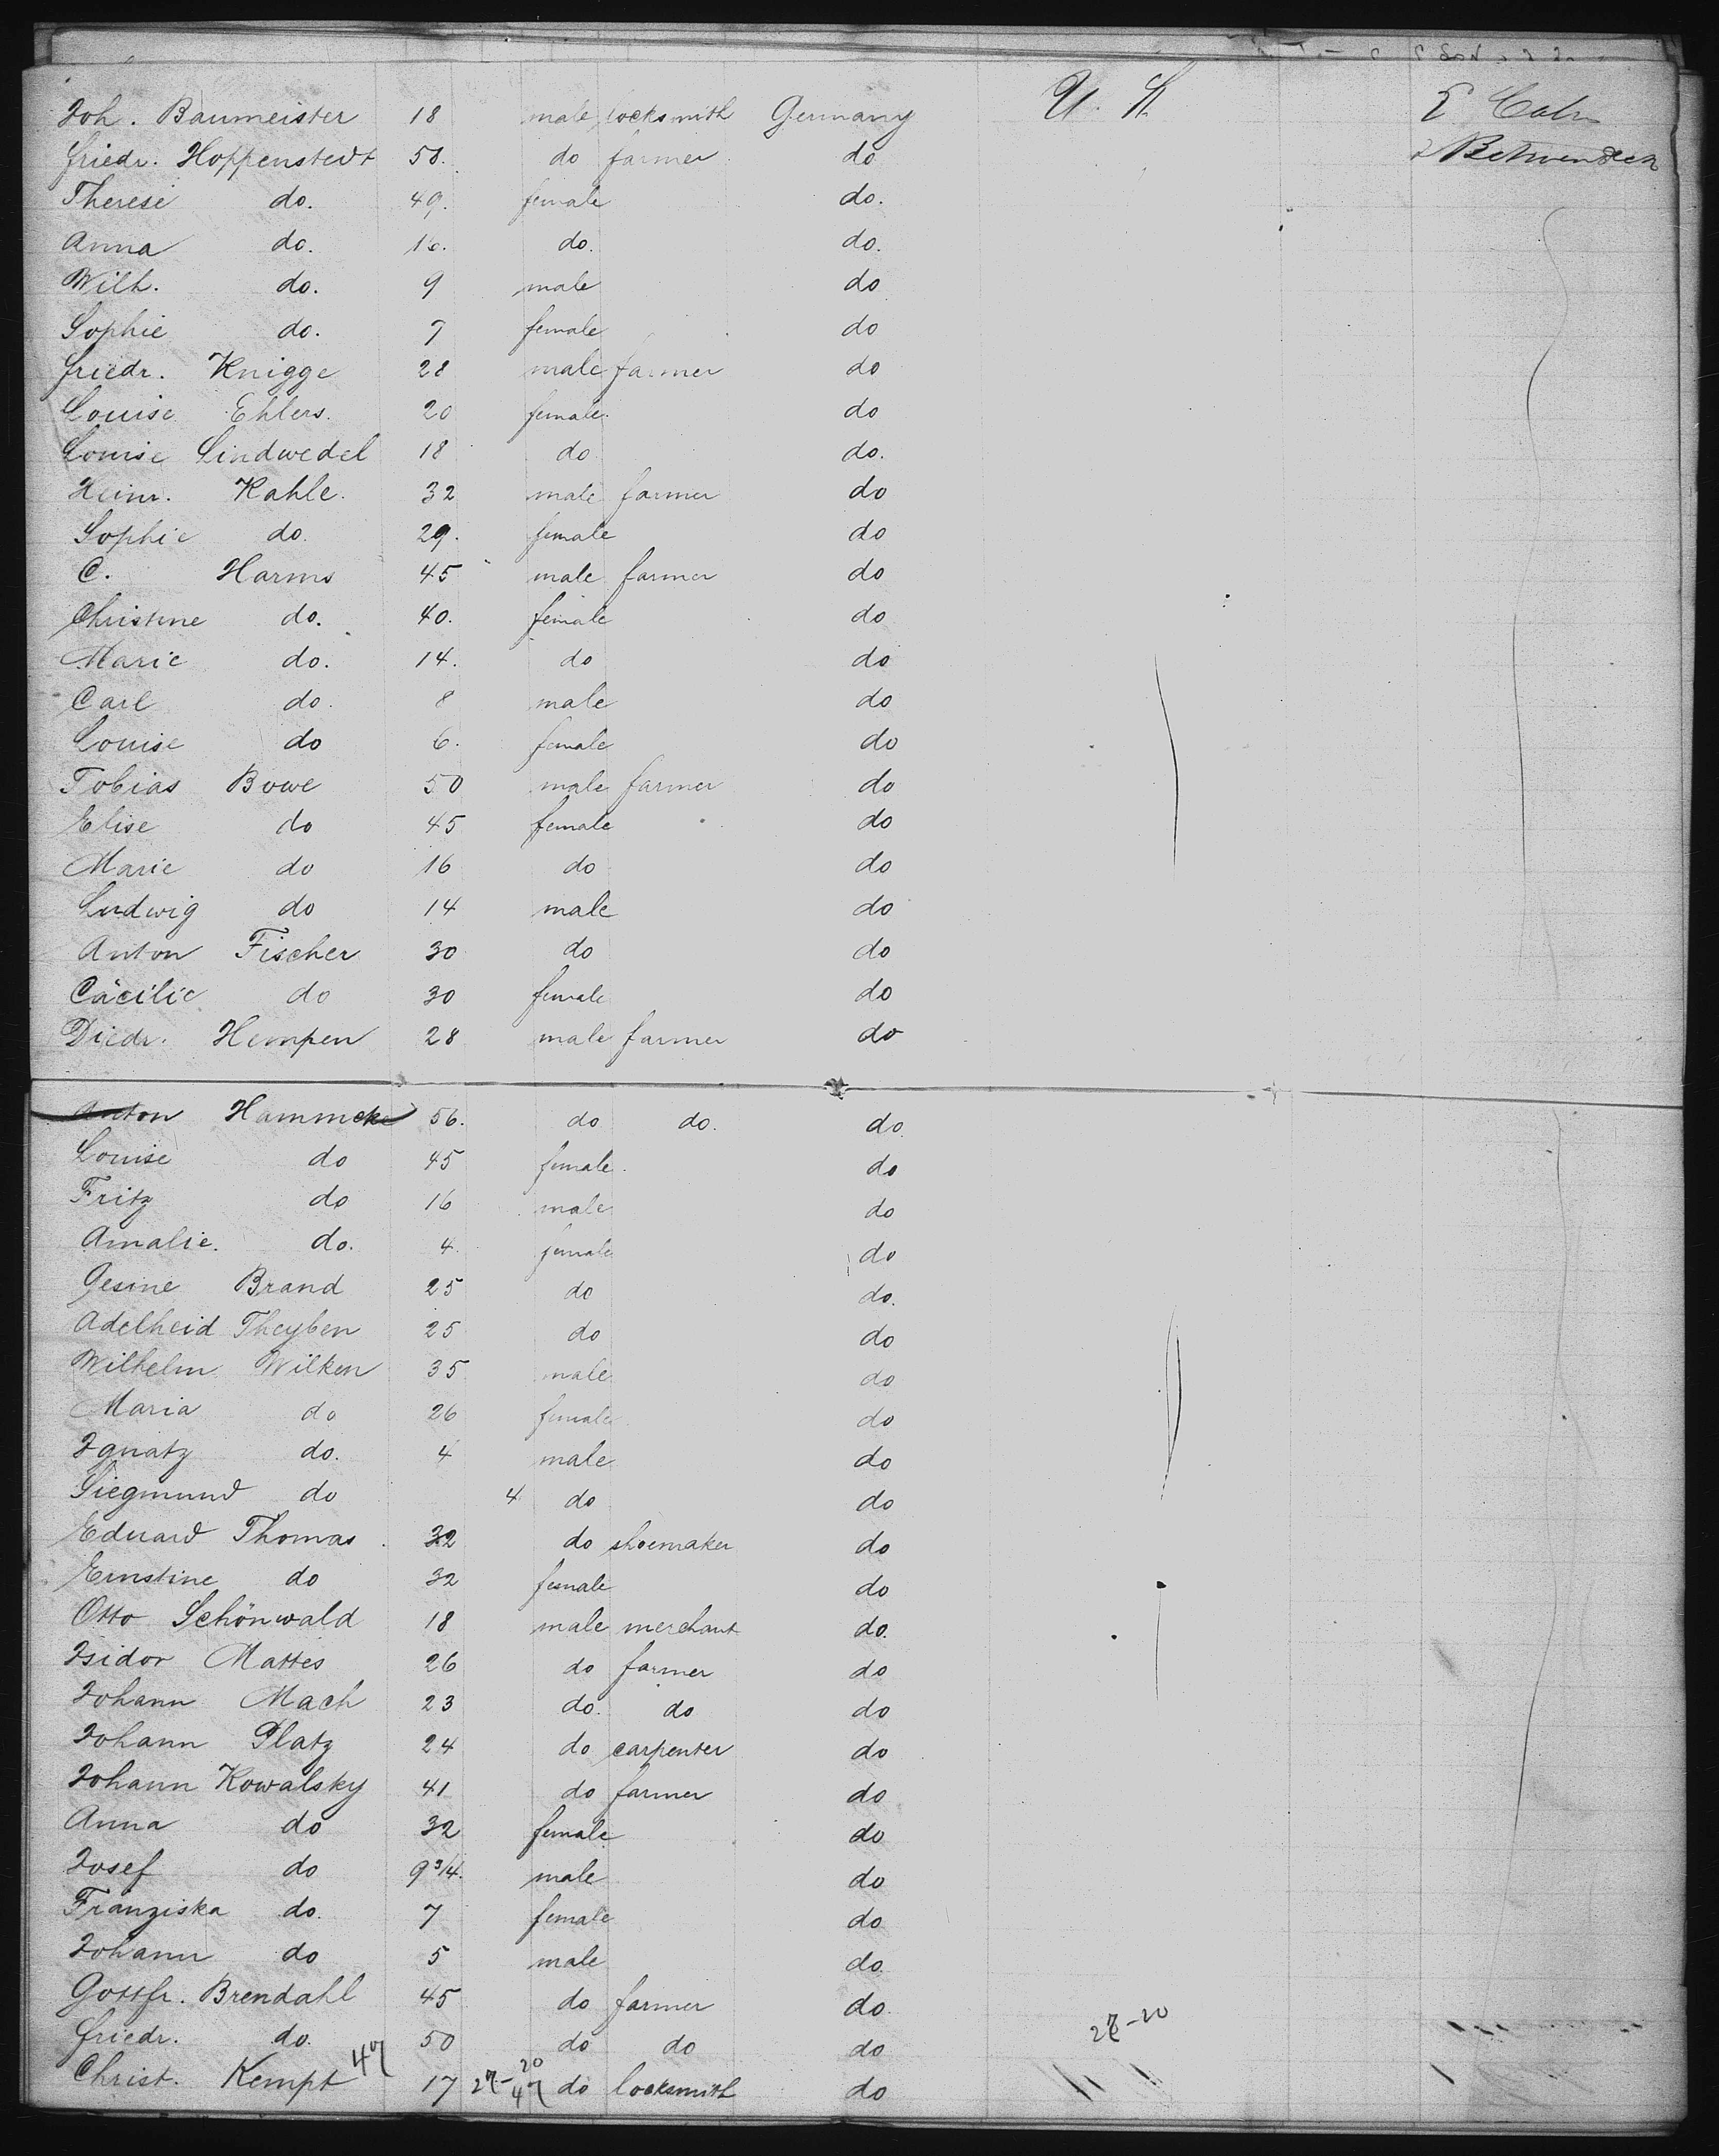 Joh. Baumeister 18 male locksmith Germany U. S. E Cabn
Friedr. Hoppenstedt 58. do farmer do Betwendeck
Therese do. 49. female do.
Anna do. 16. do. do.
Wilh. do. 9 male do
Sophie do. 7 female do
Friedr. Knigge 28 male farmer do
Louise Ehlers. 20 female. do
Louise Lindwedel 18 do do.
Heinr. Kahle. 32 male farmer do
Sophie do. 29. female do
C. Harms 45 male farmer do
Christine do. 40. female do
Marie do. 14. do do
Carl do. 8 male do
Louise do 6. female do
Tobias Bowe 50 male farmer do
Elise do 45 female do
Marie do 16 do do
Ludwig do 14 male do
Anton Fischer 30 do do
Cäcilie do 30 female do
Diedr. Hempen 28 male farmer do
Anton Hammcke 56. do do. do.
Louise do 45 female. do
Fritz do 16 male do
Amalie. do. 4. female do
Gesine Brand 25 do do.
Adelheid Theyben 25 do do
Wilhelm Wilken 35 male do
Maria do 26 female do
Ignatz do. 4 male do
Siegmund do 4 do do
Eduard Thomas. 32 do shoemaker do
Ernstine do 32 female do
Otto Schönwald 18 male merchant do.
Isidor Mattes 26 do farmer do
Johann Mach 23 do. do do
Johann Platz 24 do carpenter do
Johann Kowalsky 41 do farmer do
Anna do 32 female do
Josef do 9 3/4. male do
Franziska do. 7 female do
Johann do 5 male do.
Gottfr. Brendahl 45 do farmer do.
Friedr. do. 50 do do do 27-20
Christ. Kempt 47 17 27-20 47 do locksmith do